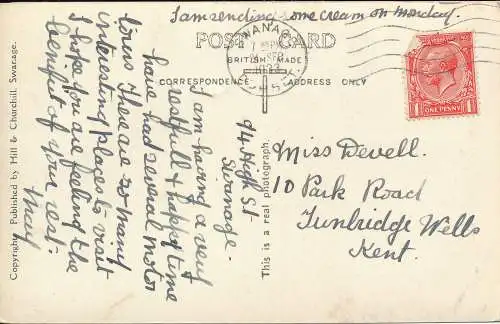 I am sending some cream on Monday.
POST CARD
BRITISH MADE
CORRESPONDENCE
ADDRESS ONLY
SWANAGE
94 High St
Swanage.
I am having a very
restfull & happy time
have had several motor
tours. There are so many
interesting places to visit
I hope you are feeling the
benefit of your rest.
May
Copyright. Published by Hill & Churchill, Swanage.
This is a real photograph.
ONE PENNY
Miss Devell.
10 Park Road
Tunbridge Wells
Kent.